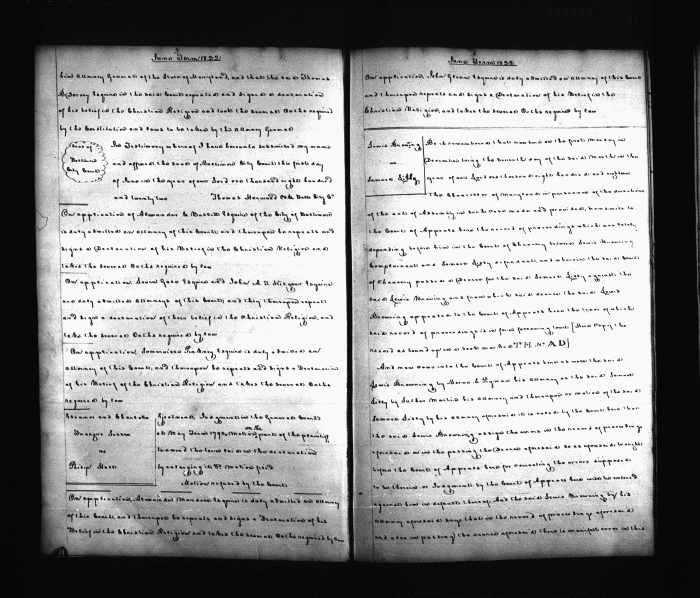 June Term 1822
him Attorney General of the State of Maryland, and that the said Thomas
B Dorsey Esquire in the said Court repeated and signed a declaration
of his belief in the Christian Religion and took the several Oaths required
by the Constitution and Laws to be taken by the Attorney General
Seal of
Baltimore
City Court
In Testimony whereof I have hereunto subscribed my name
and affixed the seal of Baltimore City Court this first day
of June in the year of our Lord one thousand eight hundred
and twenty two
On application of Alexander Esquire of the City of Baltimore
is duly admitted an attorney of this Court, and thereupon he repeats and
signs a Declaration of his Belief in the Christian Religion and
takes the several Oaths required by law
On application Esquire and John A. Esquire
are duly admitted Attorneys of this Court, and they thereupon repeat
and sign a declaration of their belief in the Christian Religion, and
take the several Oaths required by law
On application, Pinkney Esquire is duly admitted an
attorney of this Court, and thereupon he repeats and signs a Declaration
of his Belief of the Christian Religion and takes the several Oaths
required by law
Eleanor and Charlotte
vs
Philip
Ejectment, Judgment in the General Court
at May Term 1790, Motion on the part of the plaintiff
to amend the time laid in the declaration
by enlarging it. Motion filed
Motion refused by the Court
On application, Alexander Esquire is duly admitted an attorney
of this Court, and thereupon he repeats and signs a Declaration of his
Belief in the Christian Religion and takes the several Oaths required by law
June Term 1822
On application, John Glenn Esquire is duly admitted an attorney of this Court
and thereupon repeats and signs a Declaration of his Belief in the
Christian Religion, and takes the several Oaths required by law
Lewis Browning
vs
Samuel Lilly
Be it remembered that now here on the first Monday in
December being the day of the said Month in the
year of our Lord eighteen hundred and
The Chancellor of Maryland in pursuance of the directions
of the act of Assembly in such case made and provided, transmits to
the Court of Appeals here the record of proceedings which was lately
depending before him in the Court of Chancery between Lewis Browning
Complainant and Samuel Lilly defendant, and wherein the said Court
of Chancery passed a Decree for the said Samuel Lilly against the
said Lewis Browning and from which said decree the said Lewis
Browning appealed to the Court of Appeals here the tenor of which
said record of proceedings is as follows to wit [Here Copy the
record as found in a book marked T. H. No. A D]
And now come into the Court of Appeals here as well the said
Lewis Browning by his attorney as the said Samuel
Lilly by Luther Martin his attorney and thereupon on motion of the said
Samuel Lilly by his attorney aforesaid it is ruled by the Court here that
the said Lewis Browning assign the errors in the record of proceedings
aforesaid or in the passing the Decree aforesaid so as aforesaid brought
before the Court of Appeals here for correcting the errors supposed
to be therein or Judgment by the Court of Appeals here will be entered
against him in default thereof. And the said Lewis Browning by his
attorney aforesaid says that in the record of proceedings aforesaid
and also in passing the decree aforesaid there is manifest error in this